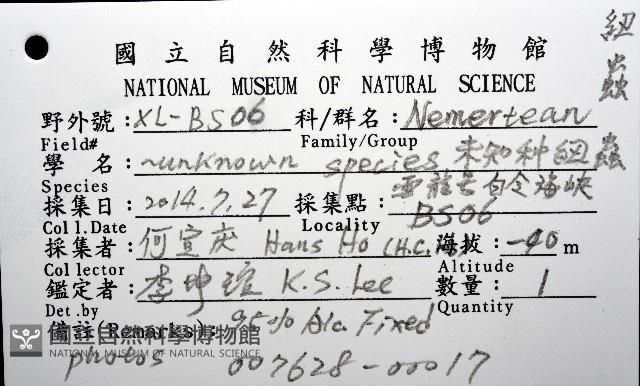 紐蟲
國立自然科學博物館
NATIONAL MUSEUM OF NATURAL SCIENCE
野外號: XL-BS06 科/群名: Nemertean
Field# Family/Group
學 名: ~unknown species 未知种紐蟲
Species 雪龍号白令海峽
採集日: 2014.7.27 採集點: BS06
Col l.Date Locality
採集者: 何宣庆 Hans Ho (H.C. 海拔: -40 m
Col lector Altitude
鑑定者: 李坤瑄 K.S. Lee 數量: 1
Det .by Quantity
備註(Remarks): 95% Alc. Fixed
國立自然科學博物館
NATIONAL MUSEUM OF NATURAL SCIENCE
photos 007628-00017